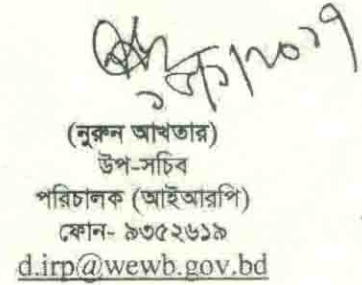 (নুরুন আখতার)
উপ-সচিব
পরিচালক (আইআরপি)
ফোন- ৯৩৫২৬১৯
d.irp@wewb.gov.bd